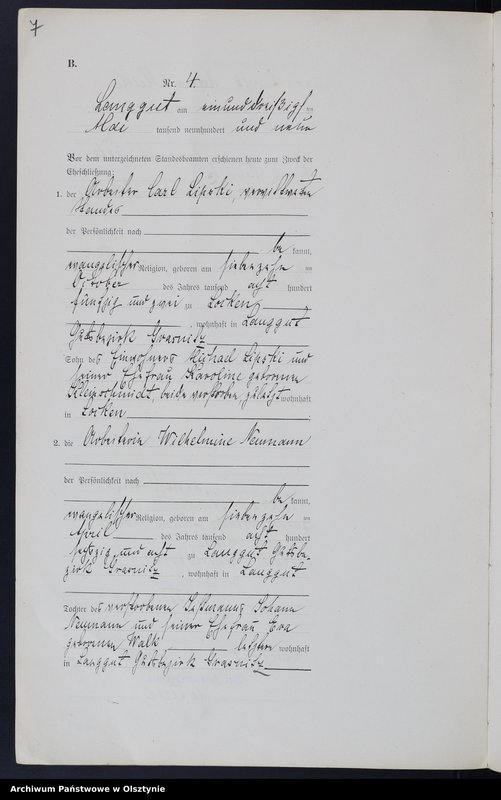 7
B.
Nr. 4.
Langgut am einunddreißigsten
Mai tausend neunhundert und neun
Vor dem unterzeichneten Standesbeamten erschienen heute zum Zweck der
Eheschließung:
1. der Arbeiter Carl Lipski, verwittweten
Standes
der Persönlichkeit nach
be kannt,
evangelischer Religion, geboren am siebenzehn ten
October des Jahres tausend acht hundert
fünfzig und zwei zu Locken
, wohnhaft in Langgut
Gutsbezirk Grasnitz
Sohn des Einwohners Michael Lipski und
seiner Ehefrau Karoline geborenen
Kleinschmidt, beide verstorben zuletzt wohnhaft
in Locken
2. die Arbeiterin Wilhelmine Neumann
der Persönlichkeit nach
be kannt,
evangelischer Religion, geboren am siebenzehn ten
April des Jahres tausend acht hundert
sechszig und acht zu Langgut Gutsbe-
zirk Grasnitz, wohnhaft in Langgut
Tochter des verstorbenen Johann
Neumann und seiner Ehefrau Eva
geborenen Walk letztere wohnhaft
in Langgut Gutsbezirk Grasnitz
Archiwum Państwowe w Olsztynie